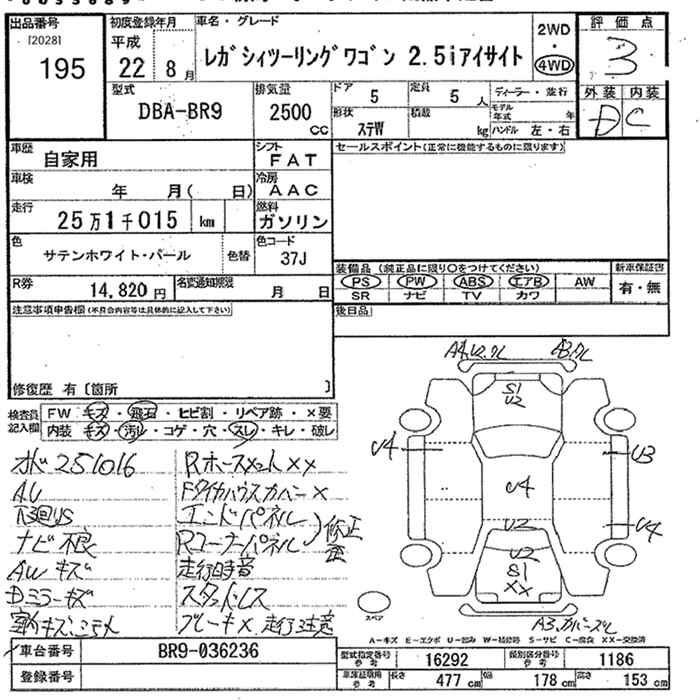 出品番号
[2028]
195
初度登録年月
平成
22 8月
車名・グレード
レガシィツーリングワゴン 2.5iアイサイト
2WD
・
4WD
評価点
3
外装 内装
D C
型式
DBA-BR9
排気量
2500
CC
ドア 5
定員 5 人
形状 ステW
積載 kg
ディーラー・並行
モデル年式 年
ハンドル 左・右
車歴 自家用
シフト FAT
セールスポイント(正常に機能するものに限ります)
車検 年 月( 日)
冷房 AAC
走行 25万1千015 km
燃料 ガソリン
色 サテンホワイト・パール 色替
色コード 37J
装備品 (純正品に限り○をつけてください)
PS PW ABS エアB AW
SR ナビ TV カワ
新車保証書
有・無
R券 14,820円
名変通知期限 月 日
注意事項申告欄(不具合内容等は具体的に記入して下さい)
後日品
修復歴 有〔箇所 〕
検査員記入欄
FW キズ・飛石・ヒビ割・リペア跡・×要
内装 キズ・汚れ・コゲ・穴・スレ・キレ・破レ
オド251016
AU
ナビ不良
AWキズ
Dミラーキズ
エンドパネル
Rコーナーパネル
修正
歪
走行時音
スタッドレス
ブレーキ× 走行注意
S1
U2
U4
U3
U4
U4
U2
U2
S1
XX
スペア
A-キズ E-エクボ U-凹み W-補修跡 S-サビ C-腐食 XX-交換済
車台番号 BR9-036236
登録番号
型式指定番号 参考 16292
類別区分番号 参考 1186
車庫証明用 参考 長さ 477 cm 幅 178 cm 高さ 153 cm